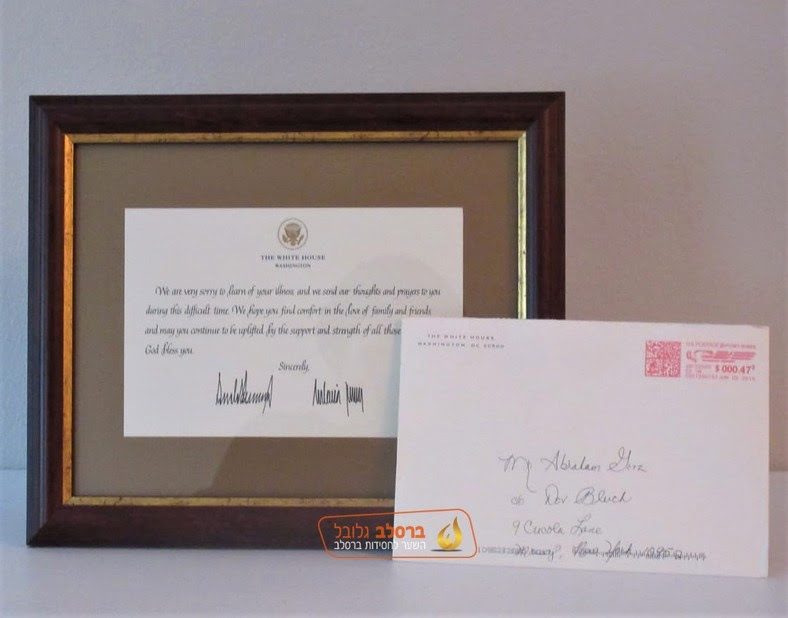 THE WHITE HOUSE
WASHINGTON
We are very sorry to learn of your illness, and we send our thoughts and prayers to you
during this difficult time. We hope you find comfort in the love of family and friends
and may you continue to be uplifted by the support and strength of all those
God bless you.
Sincerely,
THE WHITE HOUSE
WASHINGTON, DC 20500
$ 000.47
Mr Abraham
c/o Dov Bloch
9 Lane
New York
ברסלב גלובל
השער לחסידות ברסלב